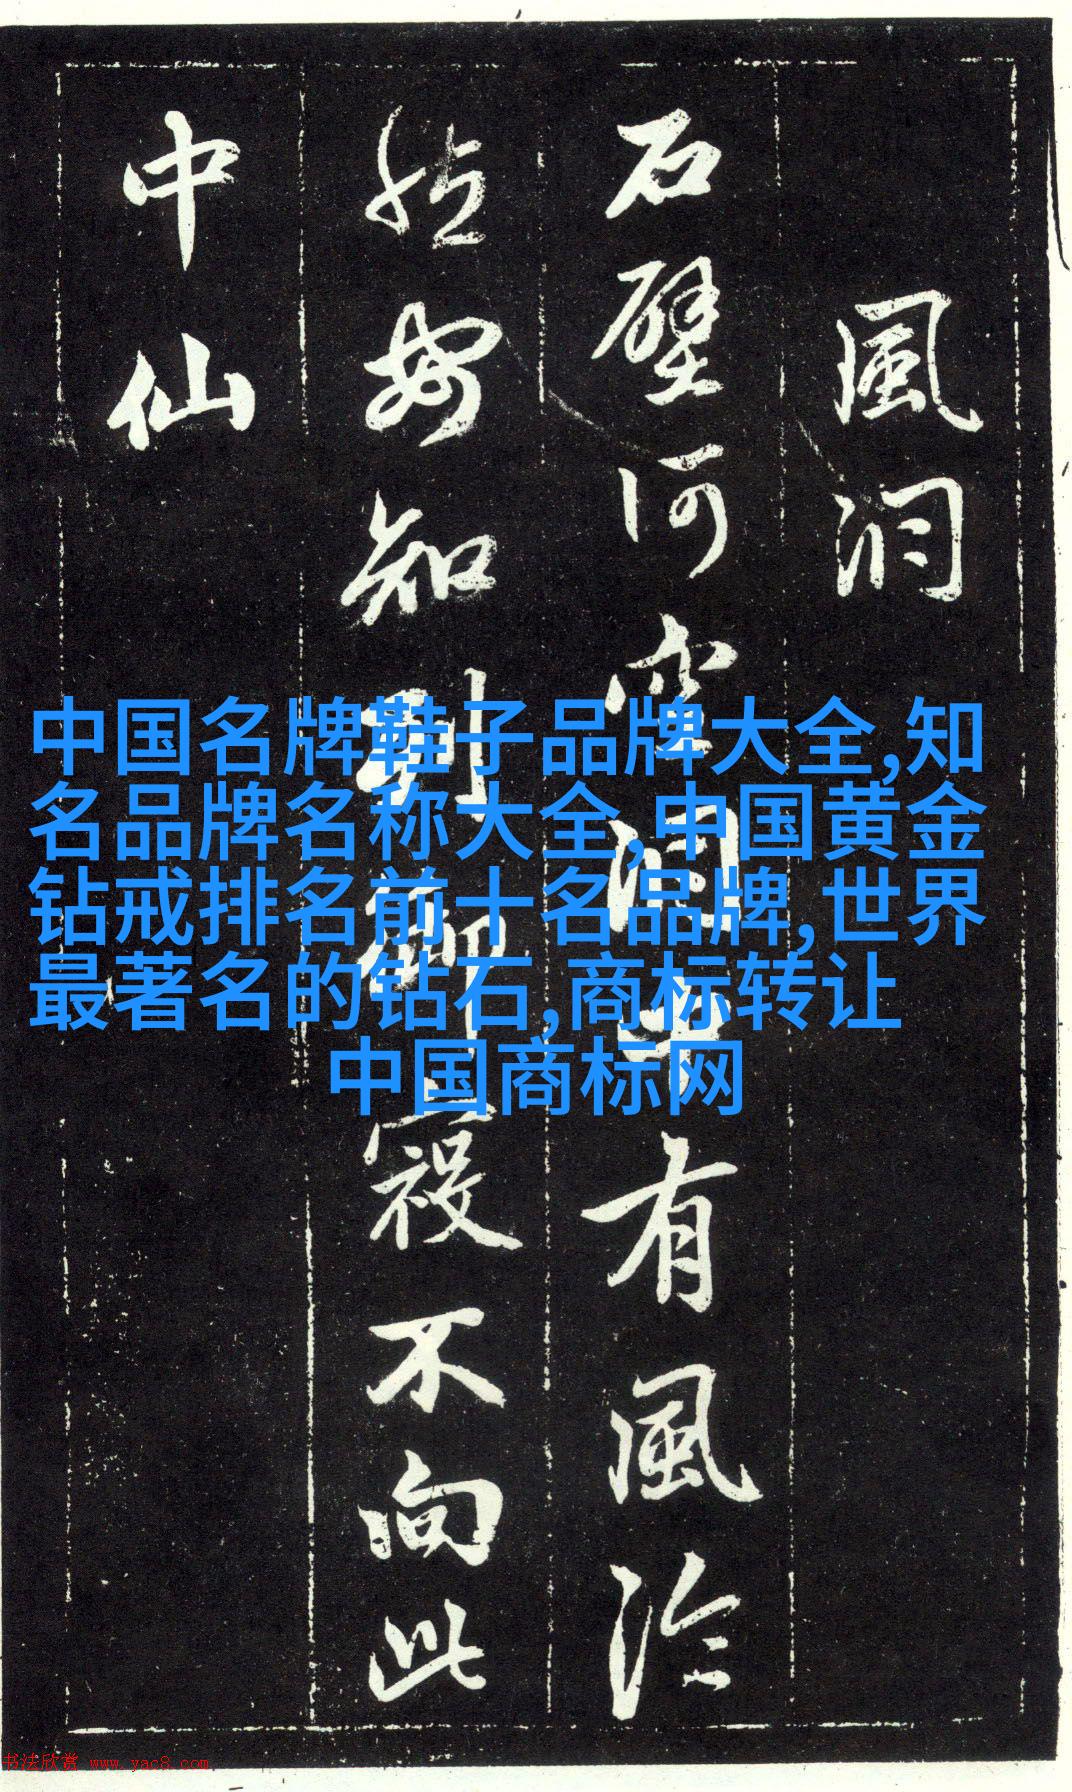 風洞
石壁何空洞中有風泠
然安知列禦寇不向此
中仙
中国名牌鞋子品牌大全,知
名品牌名称大全,中国黄金
钻戒排名前十名品牌,世界
最著名的钻石,商标转让
中国商标网
书法欣赏 www.yac8.com